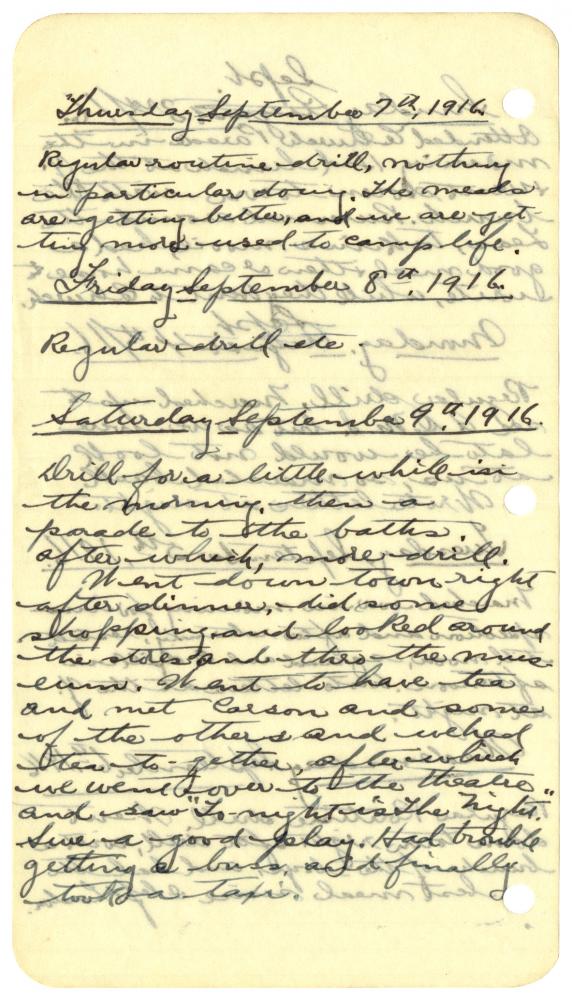 Thursday September 7th, 1916.
Regular routine drill, nothing
in particular doing. The meals
are getting better, and we are get-
ting more used to camp life.
Friday September 8th, 1916.
Regular drill etc.
Saturday September 9th, 1916.
Drill for a little while in
the morning, then a
parade to the baths.
after which, more drill.
Went down town right
after dinner, did some
shopping, and looked around
the stores and thro the mus-
eum. Went to have tea
and met Carson and some
of the others and we had
tea to-gether, after which
we went over to the theatre
and saw "To-night is The Night."
Sure a good play. Had trouble
getting a buss, and finally
took a taxi.